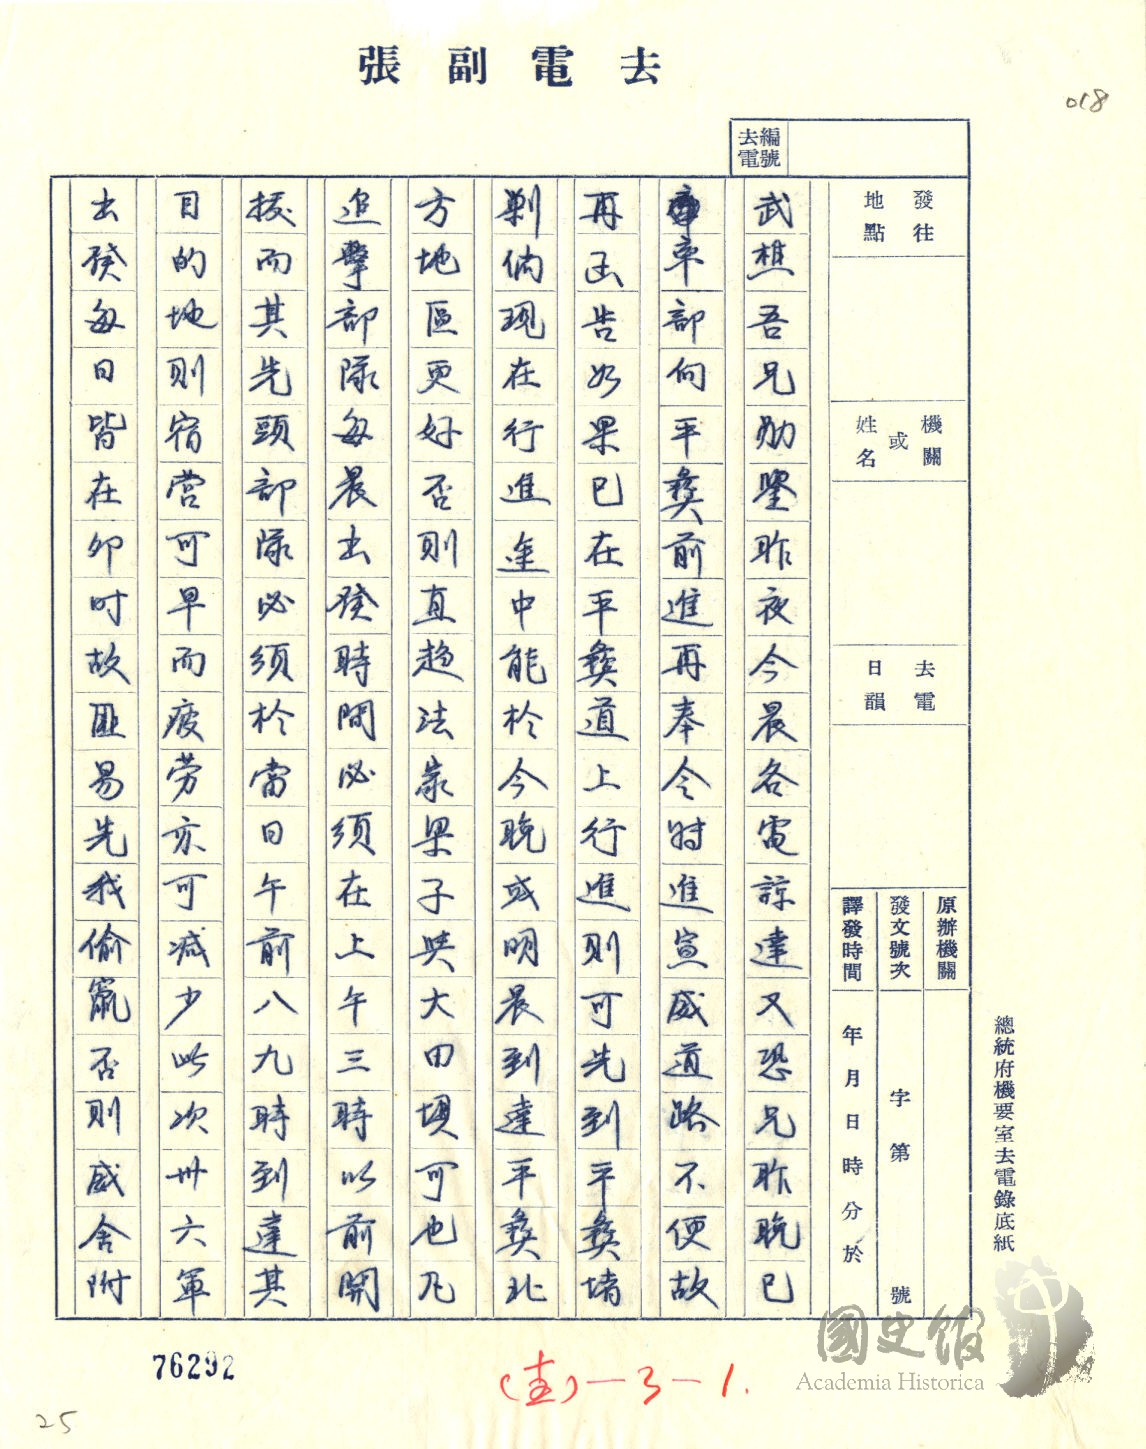 去電副張
018
去電編號
發往地點
機關或姓名
去電日韻
原辦機關
發文號次 字第 號
譯發時間 年月日時分於
武樵吾兄勛鑒昨夜今晨各電諒達又恐兄昨晚已
率部向平彝前進再奉令時進宣威道路不便故
再函告如果已在平彝道上行進則可先到平彝堵
剿倘現在行進途中能於今晚或明晨到達平彝北
方地區更好否則直趨法家梁子與大田垻可也凡
追擊部隊每晨出發時間必須在上午三時以前開
拔而其先頭部隊必須於當日午前八九時到達其
目的地則宿營可早而疲劳亦可減少此次卅六軍
出發每日皆在卯时故匪易先我偷竄否則威舍附
總統府機要室去電錄底紙
76292
(圭)一3一1.
25
國史館
Academia Historica